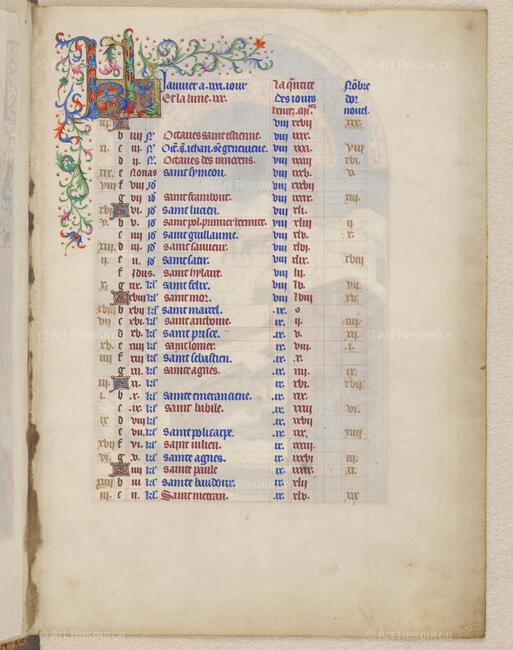 © Art Resource © Art Resource
Janvier a .xxxi. iour La q̃ntite Nõbre
Et la lune .xxx. des iours dor
nouel.
iii.
b iiii N̊ Octaves saint estienne. viii xxvii xix.
xi. c iii. N̊ Oct. s. iehan. ste genevieve. viii xxix. viii
d ii. N̊ Octaves des innocens. viii xxxii xvi.
xix. e Nonas saint symeon. viii xxxv. v.
viii f viii jd̊ viii xxxvii
g vii jd̊ saint frambout. viii xxxix xiii.
xvi vi. jd̊ saint lucien. viii xli. ii.
v. b v. jd̊ saint pol. premier hermite. viii xliii
c iiii jd̊ saint guillaume. viii xlv. x.
xiii d iii. jd̊ saint sauveur. viii xlvi.
ii e ii. jd̊ saint satir. viii xlix. xviii
f Jdus. saint hylaire. viii lii.
x. g xix. kł saint felix. viii lv. vii.
xviii kł saint mor. viii lviii xv.
xviii b xvii kł saint marcel. ix. o
vii c xvi. kł saint anthoine. ix. ii. iiii.
d xv. kł sainte prisce. ix. v. xii.
xv. e xiiii kł saint lomer. ix. viii. i.
iiii f xiii kł saint sebastien. ix. x.
g xii. kł sainte agnes. ix. xiii. ix.
xii. xi. kł ix. xvi. xvii.
i. b .x. kł sainte emeranciene. ix. xix.
c .ix. kł saint babile. ix. xxiii vi.
ix d viii kł ix. xxvi
e vii. kł saint policarpe. ix. xxx. xiiii
xvii f vi. kł saint iulien. ix. xxxiii iii.
vi. g v. kł sainte agnes. ix. xxxvi
iiii kł sainte paule ix. xxxix. xi.
xiiii b iii kł sainte baudour. ix. xlii
iii. c ii. kł Saint metran. ix. xlv. xix
© Art Resource © Art Resource